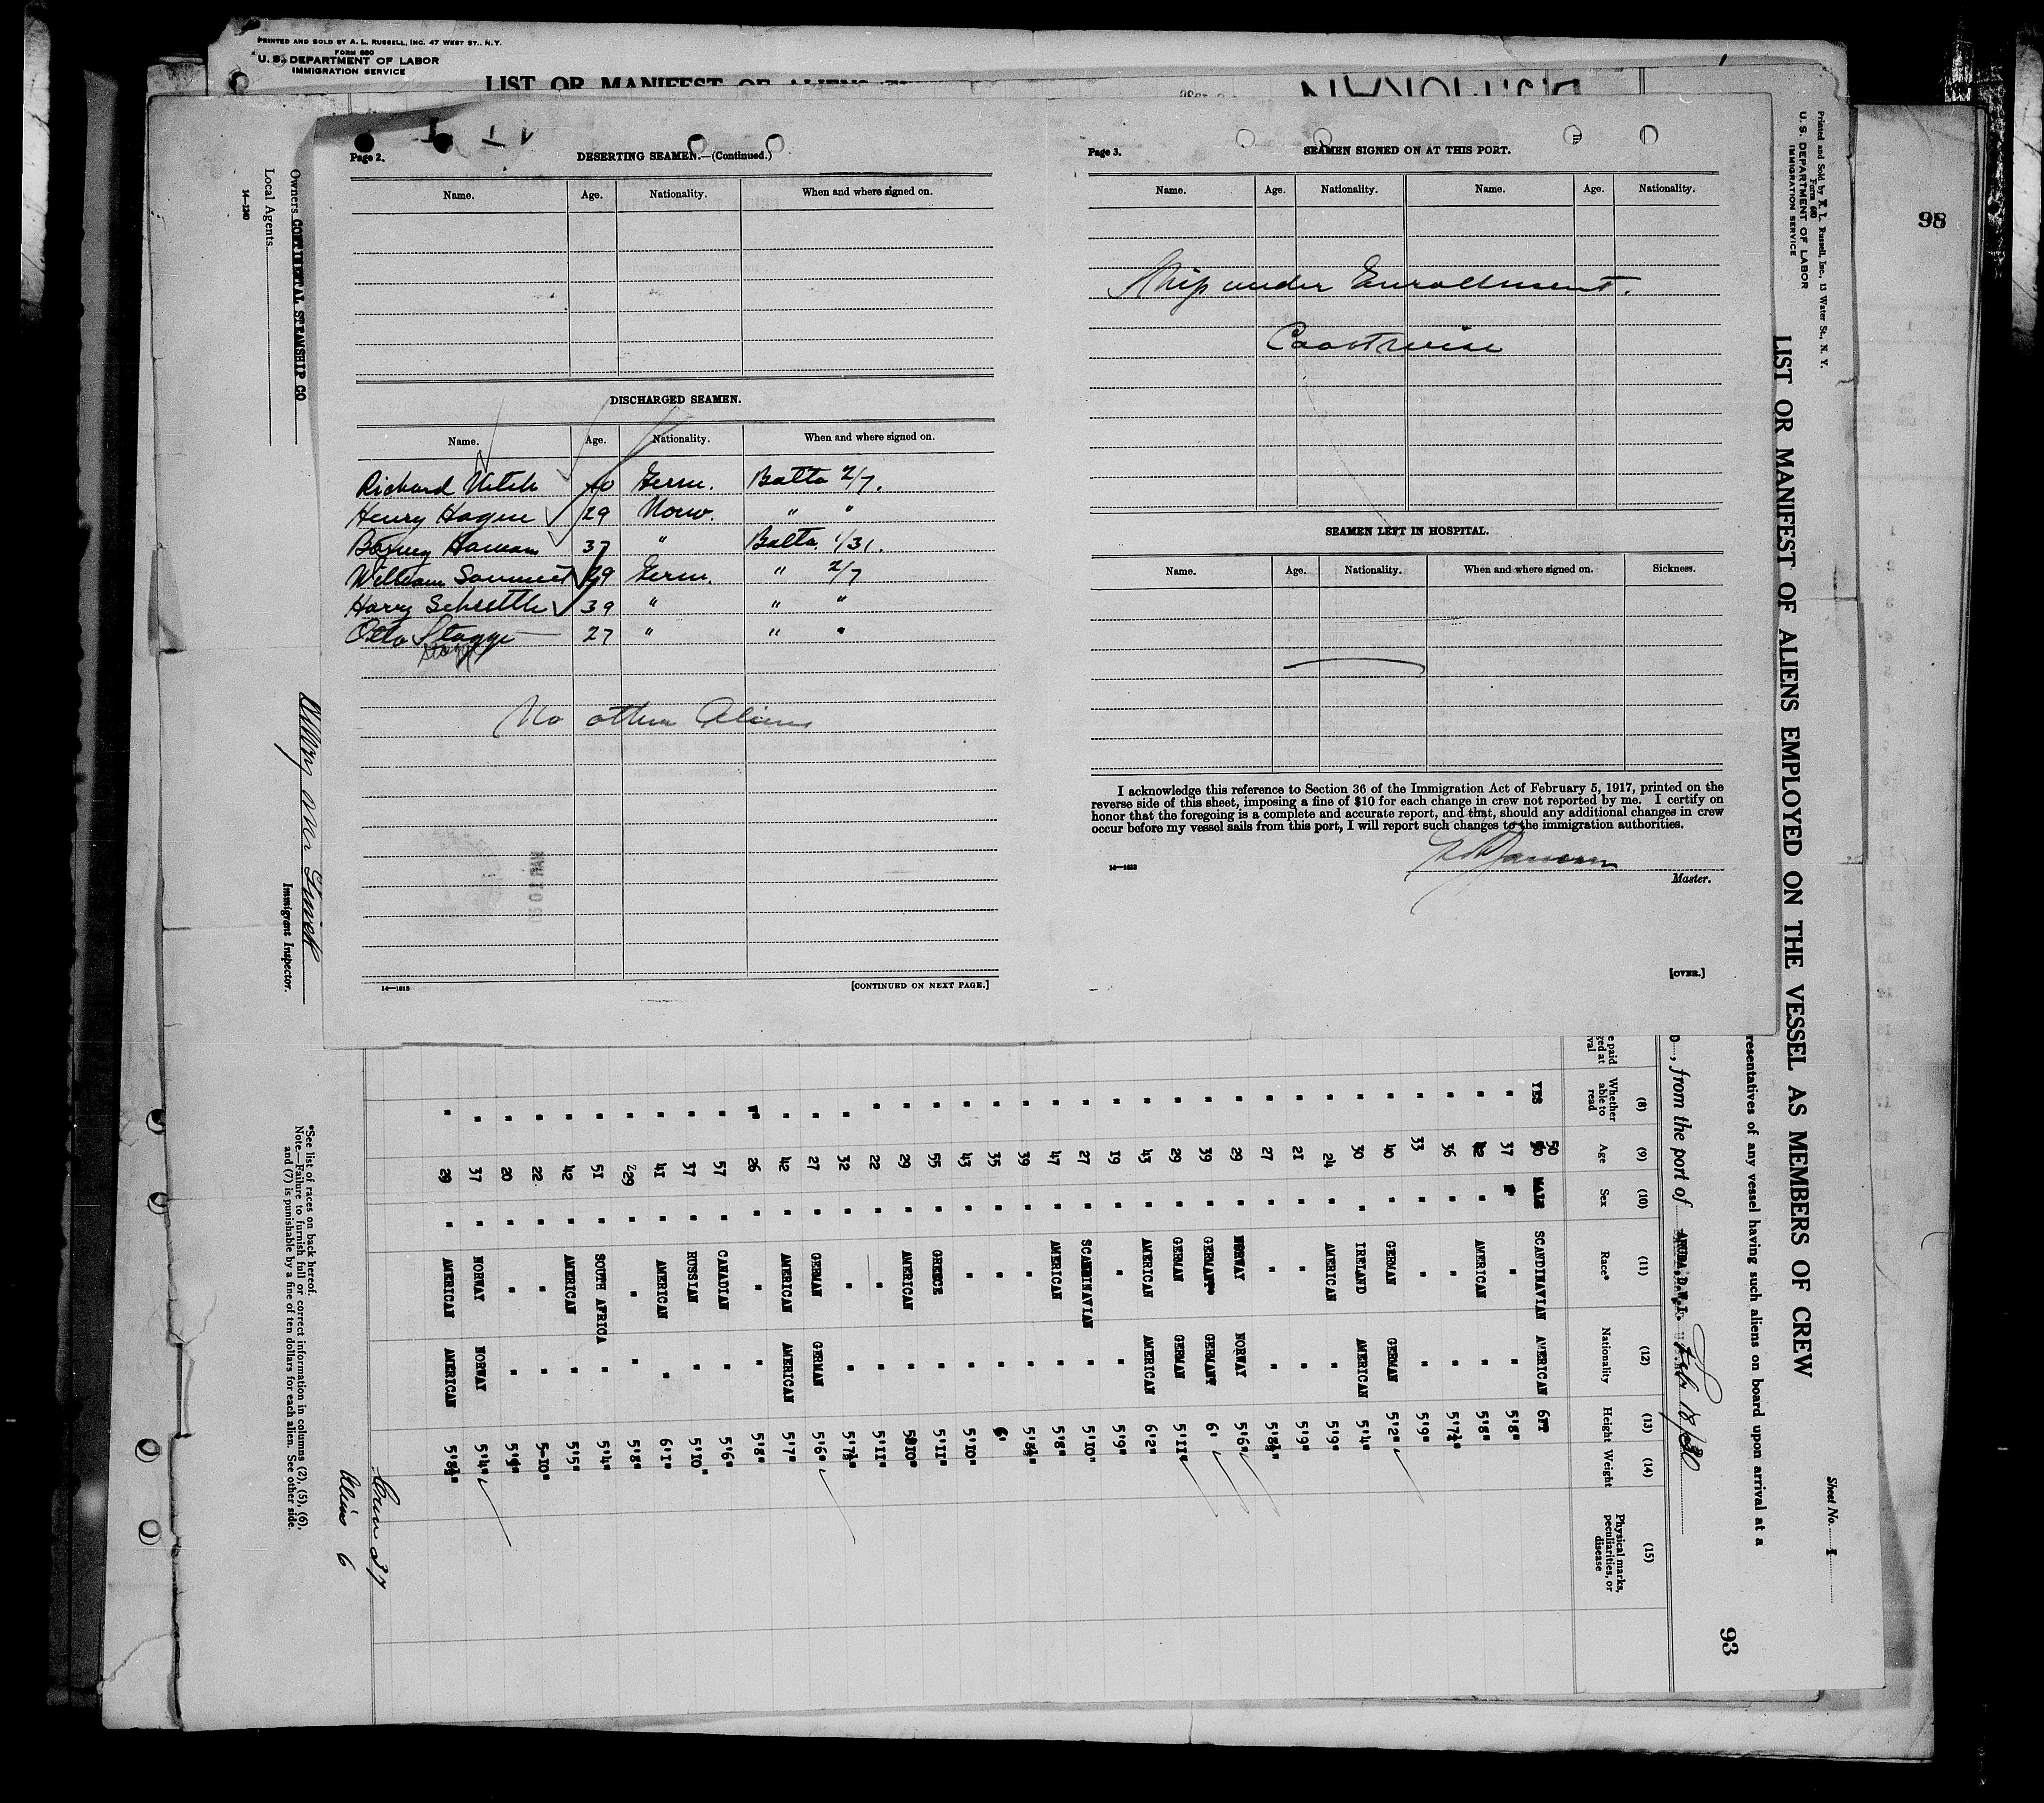 PRINTED AND SOLD BY A. L. RUSSELL, INC. 47 WEST ST., N.Y.
FORM 680
U. S. DEPARTMENT OF LABOR
IMMIGRATION SERVICE
LIST OR MANIFEST OF ALIENS
Page 2.
DESERTING SEAMEN.—(Continued.)
Name. Age. Nationality. When and where signed on.
DISCHARGED SEAMEN.
Name. Age. Nationality. When and where signed on.
Richard 40 Germ. Balto 2/7.
Henry Hagen 29 Norw. " "
37 " Balto. 1/31.
William 29 Germ. " 2/7
Harry 39 " " "
Otto Stagge 27 " " "
No other Aliens
14—1613
[CONTINUED ON NEXT PAGE.]
Page 3.
SEAMEN SIGNED ON AT THIS PORT.
Name. Age. Nationality. Name. Age. Nationality.
Ship under Enrollment.
Coastwise
SEAMEN LEFT IN HOSPITAL.
Name. Age. Nationality. When and where signed on. Sickness.
I acknowledge this reference to Section 36 of the Immigration Act of February 5, 1917, printed on the
reverse side of this sheet, imposing a fine of $10 for each change in crew not reported by me. I certify on
honor that the foregoing is a complete and accurate report, and that, should any additional changes in crew
occur before my vessel sails from this port, I will report such changes to the immigration authorities.
14—1613
Master.
[OVER.]
98
Printed and Sold by A. L. Russell, Inc., 13 Water St., N. Y.
Form 680
U. S. DEPARTMENT OF LABOR
IMMIGRATION SERVICE
LIST OR MANIFEST OF ALIENS EMPLOYED ON THE VESSEL AS MEMBERS OF CREW
Sheet No. 1
resentatives of any vessel having such aliens on board upon arrival at a
, from the port of ARUBA, D.W.I. Feb 18/30
93
(8) (9) (10) (11) (12) (13) (14) (15)
Whether able to read Age Sex Race* Nationality Height Weight Physical marks, peculiarities, or disease
YES 50 MALE SCANDINAVIAN AMERICAN 6FT
" 37 " " " 5'8"
" 42 " AMERICAN " 5'8"
" 36 " " " 5'7½"
" 33 " " " 5'9"
" 40 " GERMAN GERMAN 5'2"
" 30 " IRELAND AMERICAN 5'4"
" 24 " AMERICAN " 5'9"
" 21 " " " 5'9"
" 27 " " " 5'8½"
" 29 " NORWAY NORWAY 5'6"
" 39 " GERMANY GERMANY 6'
" 29 " GERMAN GERMAN 5'11"
" 43 " AMERICAN AMERICAN 6'2"
" 19 " " " 5'9"
" 27 " SCANDINAVIAN " 5'10"
" 47 " AMERICAN " 5'8"
" 39 " " " 5'8½"
" 35 " " " 6'
" 43 " " " 5'10"
" 55 " GREECE " 5'11"
" 29 " AMERICAN " 5'10"
" 22 " " " 5'11"
" 32 " " " 5'7½"
" 27 " GERMAN GERMAN 5'6"
" 42 " AMERICAN AMERICAN 5'7"
" 26 " " " 5'8"
" 57 " CANADIAN " 5'6"
" 37 " RUSSIAN " 5'10"
" 41 " AMERICAN " 6'1"
" 29 " " " 5'8"
" 51 " SOUTH AFRICA " 5'4"
" 42 " AMERICAN " 5'5"
" 22 " " " 5-10"
" 20 " " "
" 37 " NORWAY NORWAY 5'4"
" 29 " AMERICAN AMERICAN 5'8½"
Crew 37
Aliens 6
*See list of races on back hereof.
Note.—Failure to furnish full or correct information in columns (2), (5), (6),
and (7) is punishable by a fine of ten dollars for each alien. See other side.
14—1240
Local Agents
Owners CONTINENTAL STEAMSHIP CO
Immigrant Inspector.